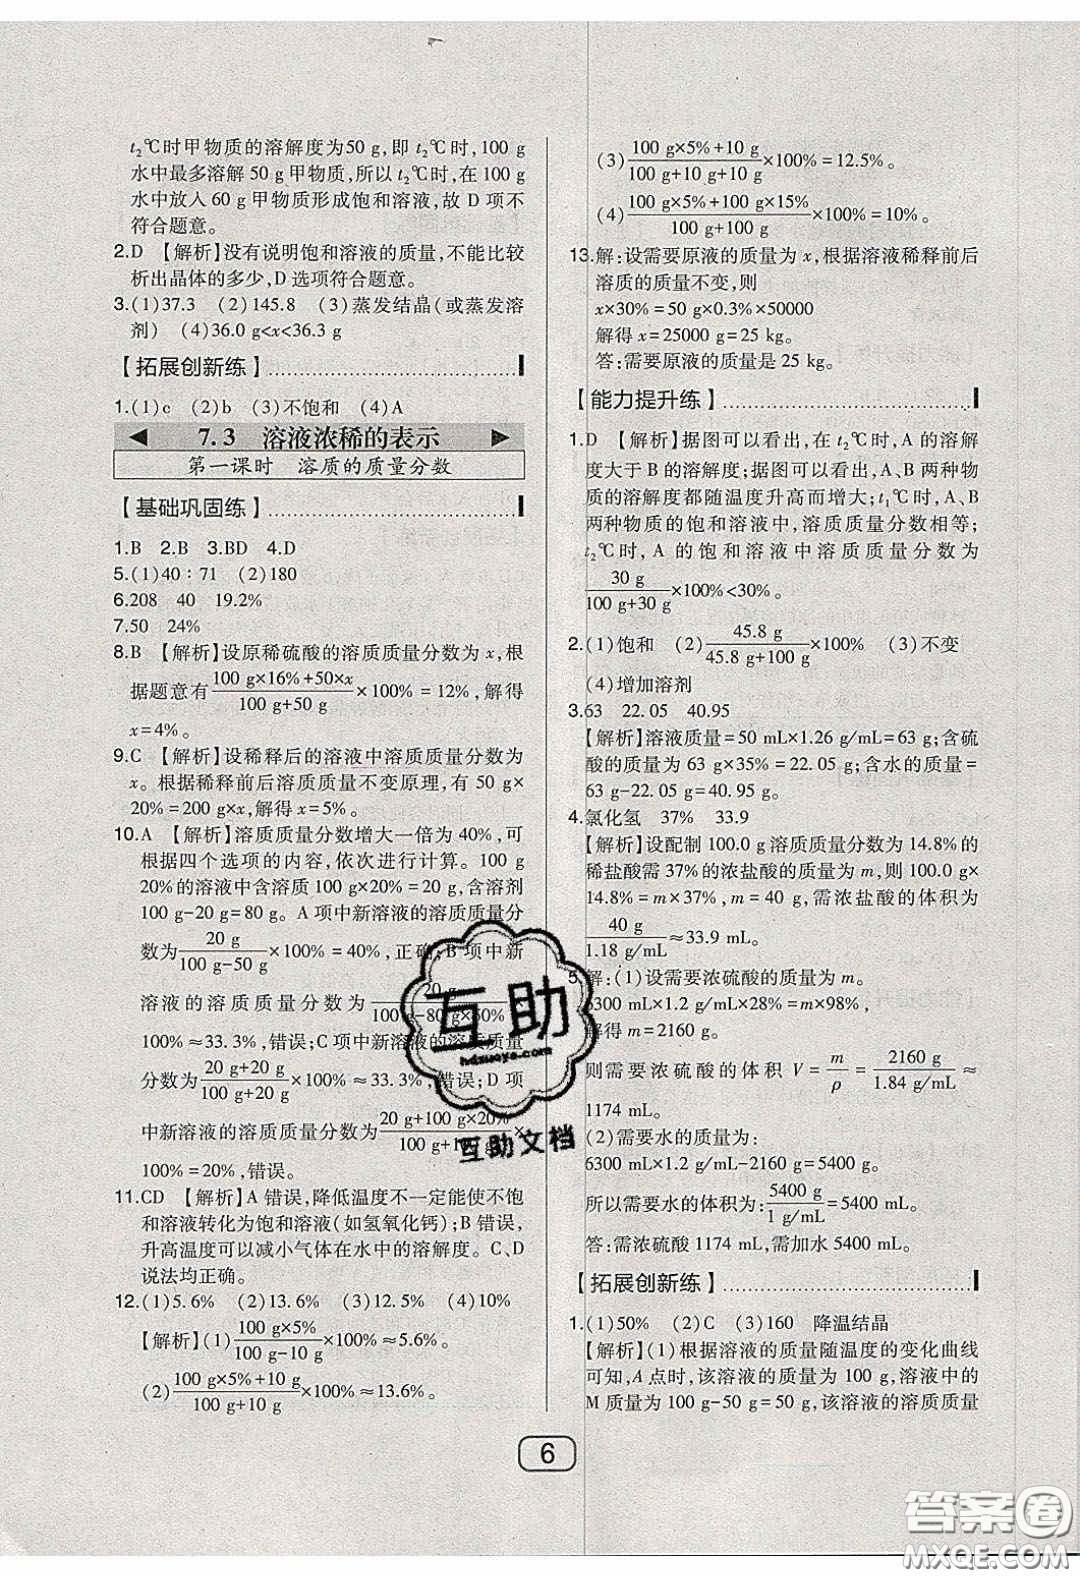 t₂℃时甲物质的溶解度为50 g,即 t₂℃时,100 g
水中最多溶解 50 g 甲物质,所以 t₂℃时,在 100 g
水中放入 60 g 甲物质形成饱和溶液,故 D 项不
符合题意。
2.D 【解析】没有说明饱和溶液的质量,不能比较
析出晶体的多少,D 选项符合题意。
3.(1)37.3 (2)145.8 (3)蒸发结晶(或蒸发溶
剂) (4)36.0 g<x<36.3 g
【拓展创新练】
1.(1)c (2)b (3)不饱和 (4)A
7.3 溶液浓稀的表示
第一课时 溶质的质量分数
【基础巩固练】
1.B 2.B 3.BD 4.D
5.(1)40∶71 (2)180
6.208 40 19.2%
7.50 24%
8.B 【解析】设原稀硫酸的溶质质量分数为 x,根
据题意有 (100 g×16%+50×x)/(100 g+50 g) ×100%=12%,解得
x=4%。
9.C 【解析】设稀释后的溶液中溶质质量分数为
x。根据稀释前后溶质质量不变原理,有 50 g×
20%=200 g×x,解得 x=5%。
10.A 【解析】溶质质量分数增大一倍为 40%,可
根据四个选项的内容,依次进行计算。100 g
20%的溶液中含溶质 100 g×20%=20 g,含溶剂
100 g-20 g=80 g。A 项中新溶液的溶质质量分
数为 20 g/(100 g-50 g) ×100%=40%,正确;B 项中新
溶液的溶质质量分数为 20 g/(100 g-80 g×50%) ×
100%≈33.3%,错误;C 项中新溶液的溶质质量
分数为 (20 g+20 g)/(100 g+20 g) ×100%≈33.3%,错误;D 项
中新溶液的溶质质量分数为 (20 g+100 g×20%)/(100 g+100 g) ×
100%=20%,错误。
11.CD 【解析】A 错误,降低温度不一定能使不饱
和溶液转化为饱和溶液(如氢氧化钙);B 错误,
升高温度可以减小气体在水中的溶解度。C、D
说法均正确。
12.(1)5.6% (2)13.6% (3)12.5% (4)10%
【解析】(1) (100 g×5%)/(100 g-10 g) ×100%≈5.6%。
(2) (100 g×5%+10 g)/(100 g+10 g) ×100%≈13.6%。
(3) (100 g×5%+10 g)/(100 g+10 g+10 g) ×100%=12.5%。
(4) (100 g×5%+100 g×15%)/(100 g+100 g) ×100%=10%。
13.解:设需要原液的质量为 x,根据溶液稀释前后
溶质的质量不变,则
x×30%=50 g×0.3%×50000
解得 x=25000 g=25 kg。
答:需要原液的质量是 25 kg。
【能力提升练】
1.D 【解析】据图可以看出,在 t₂℃时,A 的溶解
度大于 B 的溶解度;据图可以看出,A、B 两种物
质的溶解度都随温度升高而增大;t₁℃时,A、B
两种物质的饱和溶液中,溶质质量分数相等;
t₂℃时,A 的饱和溶液中溶质质量分数为
30 g/(100 g+30 g) ×100%<30%。
2.(1)饱和 (2) 45.8 g/(45.8 g+100 g) ×100% (3)不变
(4)增加溶剂
3.63 22.05 40.95
【解析】溶液质量=50 mL×1.26 g/mL=63 g;含硫
酸的质量为 63 g×35%=22.05 g;含水的质量=
63 g-22.05 g=40.95 g。
4.氯化氢 37% 33.9
【解析】设配制 100.0 g 溶质质量分数为 14.8%的
稀盐酸需 37%的浓盐酸的质量为 m,则 100.0 g×
14.8%=m×37%,m=40 g,需浓盐酸的体积为
40 g/(1.18 g/mL) ≈33.9 mL。
5.解:(1)设需要浓硫酸的质量为 m。
6300 mL×1.2 g/mL×28%=m×98%,
解得 m=2160 g。
则需要浓硫酸的体积 V=m/ρ=2160 g/(1.84 g/mL) ≈
1174 mL。
(2)需要水的质量为:
6300 mL×1.2 g/mL-2160 g=5400 g。
所以需要水的体积为: 5400 g/(1 g/mL) =5400 mL。
答:需浓硫酸 1174 mL,需加水 5400 mL。
【拓展创新练】
1.(1)50% (2)C (3)160 降温结晶
【解析】(1)根据溶液的质量随温度的变化曲线
可知,A 点时,该溶液的质量为 100 g,溶液中的
M 质量为 100 g-50 g=50 g,该溶液的溶质质量
6
互助
hdzuoye.com
互助文档
答案圈
MXQE.COM